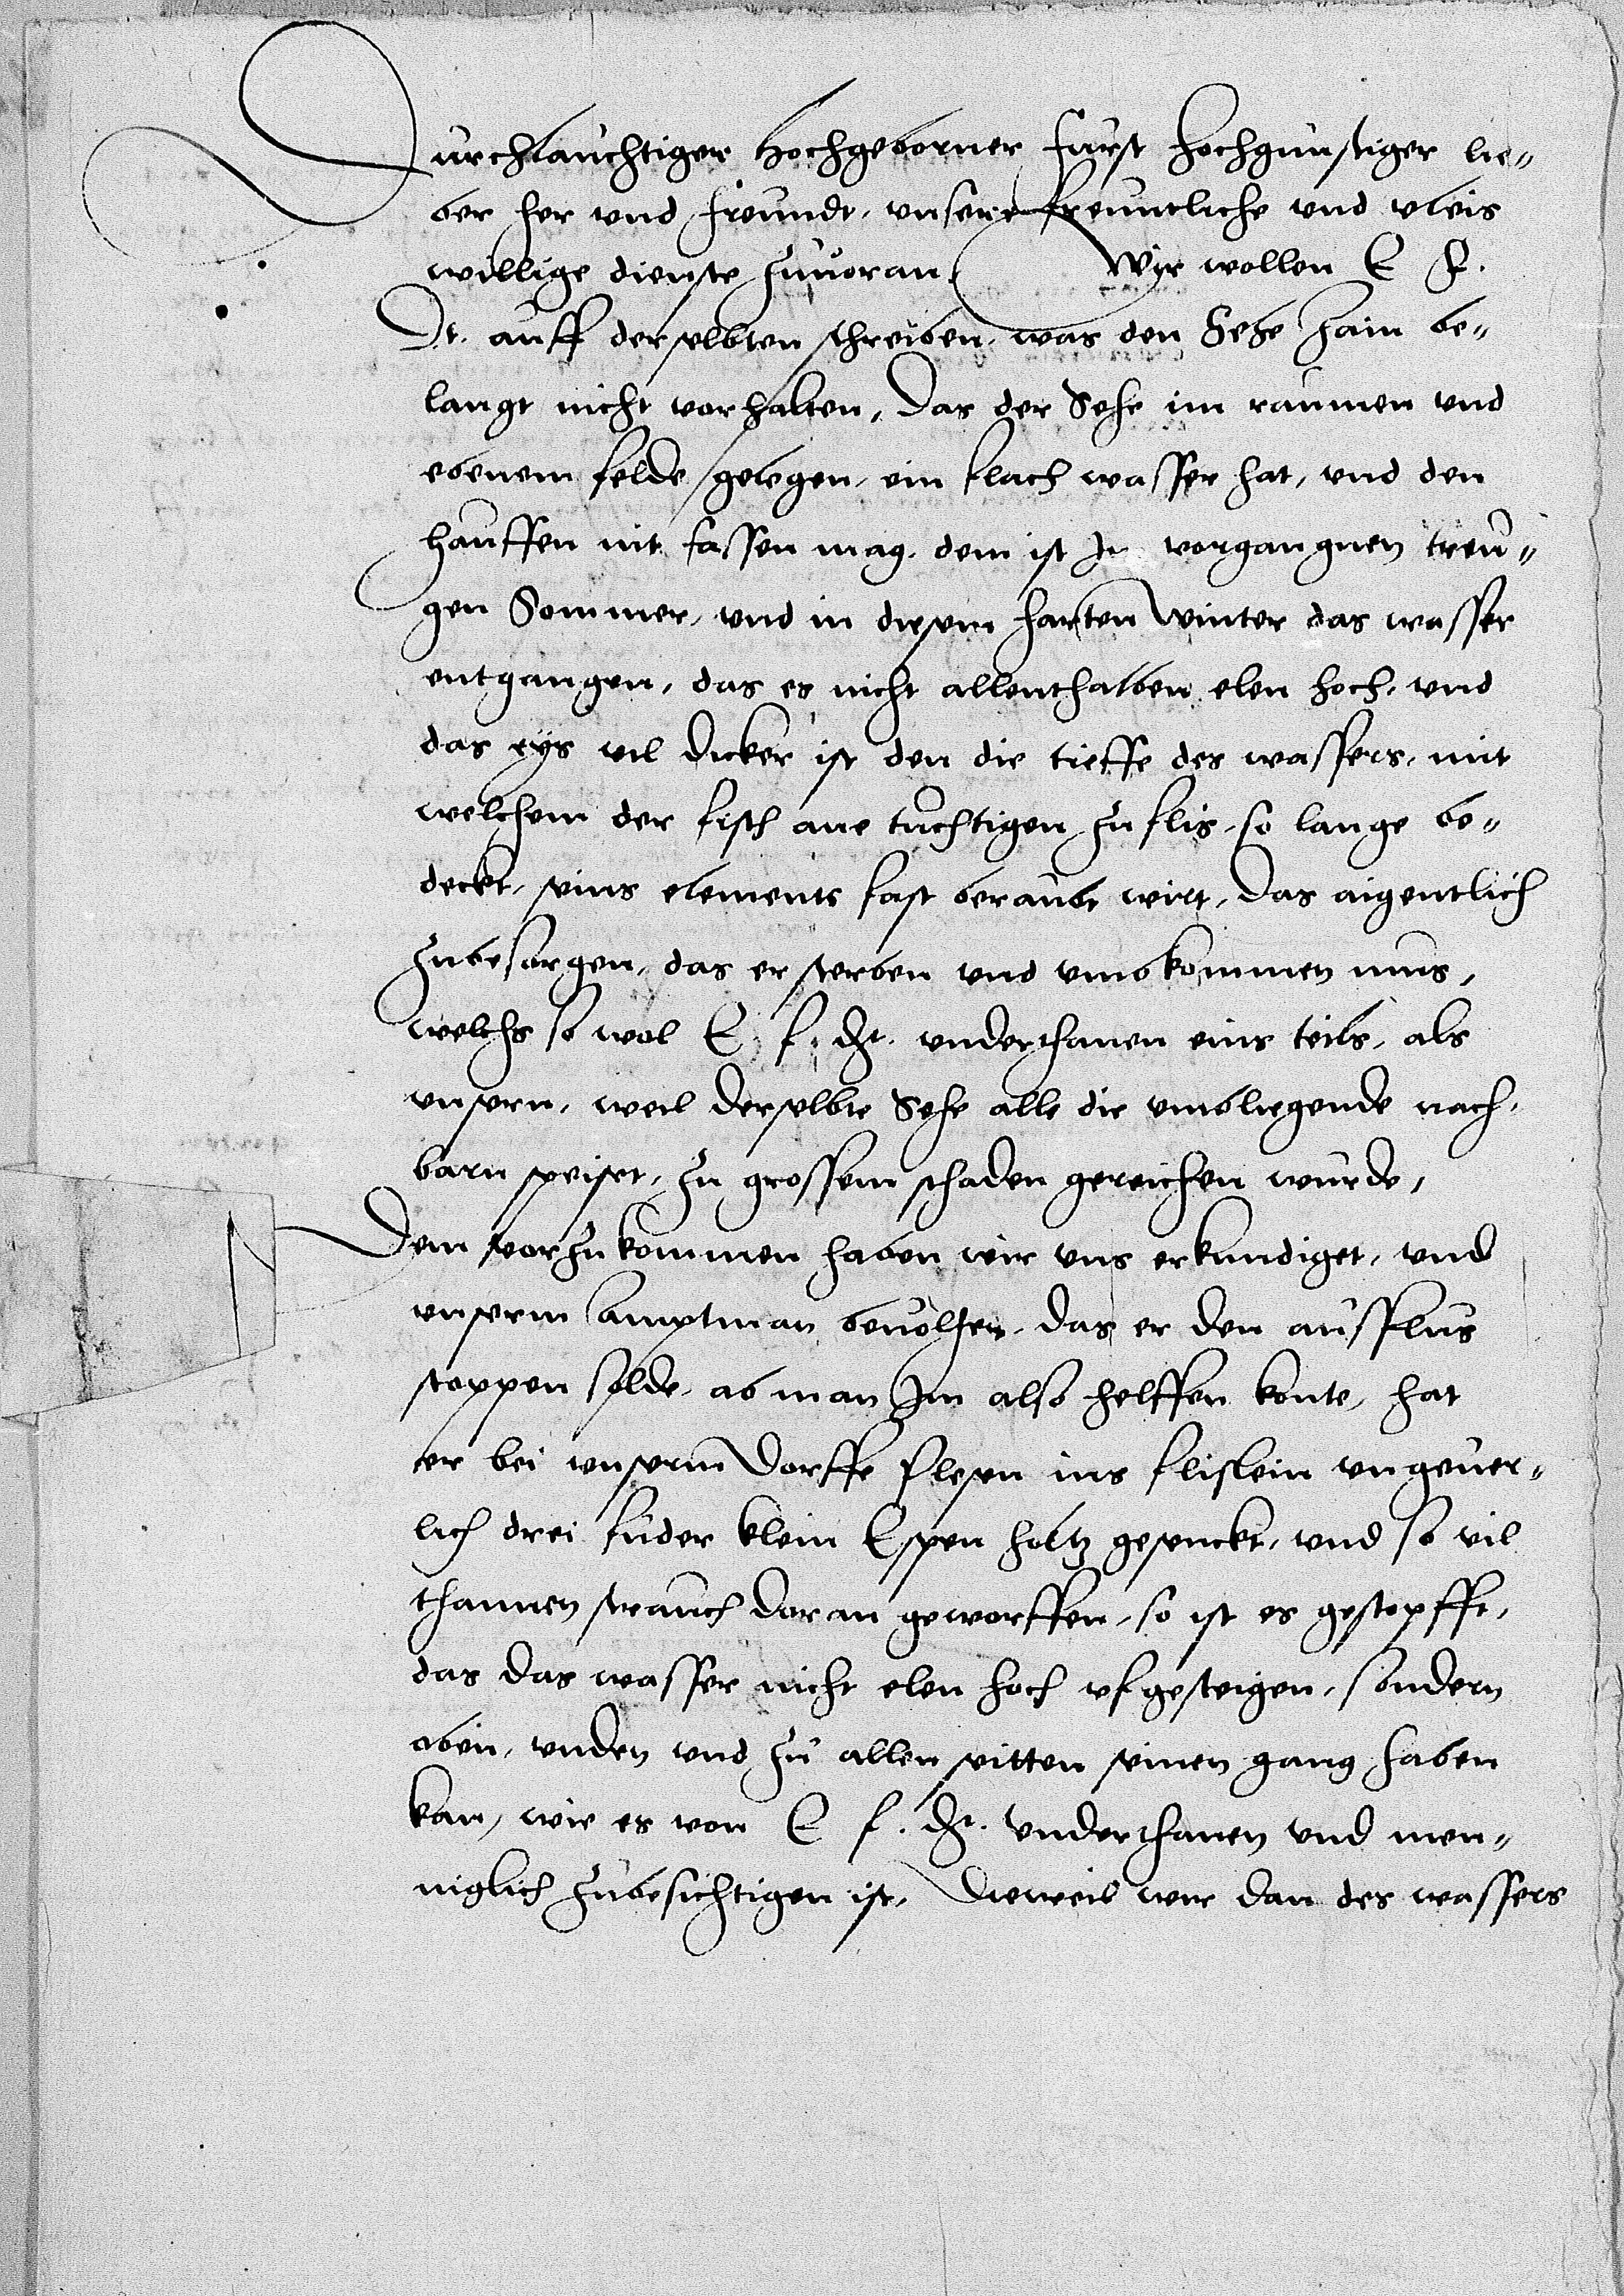 Durchlauchtiger Hochgeborner Furst hochgunstiger lie„
ber her vnd freundt, vnsere freuntliche vnd vleis
willige dienste zuuoran. Wir wollen E F.
Dt. auff derselbten schreiben, was den Sehe Hain be„
langt nicht vorhalten, Das der Sehe im raumen vnd
ebenem felde gelegen, ein flach wasser hat, vnd den
hauffen nit fassen mag, dem ist In vorgangnen treu„
gen Sommer, vnd in diesem harten Winter das wasser
entgangen, das es nicht allenthalben elen hoch, vnd
das eys vil dicker ist den die tieffe des wassers, mit
welchem der fisch ane tuchtigen zuflis, so lange be„
deckt, seins elements fast beraubt wirt, Das aigentlich
zubesorgen, das er sterben vnd vmbkommen mus,
welchs so wol E. f. dt. vnderthanen eins teils, als
vnsern, weil derselbte Sehe alle die vmbliegende nach„
barn speiset, zu grossem schaden gereichen wurde,
Dem vorzukommen haben wir vns erkundiget, vnd
vnserm amptman beuolhen, das er den ausflus
stoppen solde, ab man Im also helffen konte, hat
er bei vnserm Dorffe flesen ins flislein vngeuer„
lich drei fuder klein Espen holtz gesenckt, vnd so vil
thannen strauch daran geworffen, so ist es gestopfft,
das das wasser nicht elen hoch vfgesteigen, sondern
oben, vnden vnd zu allen seitten seinen gang haben
kan, wie es von E f. dt. vnderthanen vnd men„
niglich zubesichtigen ist, Dieweil wir dan des wassers